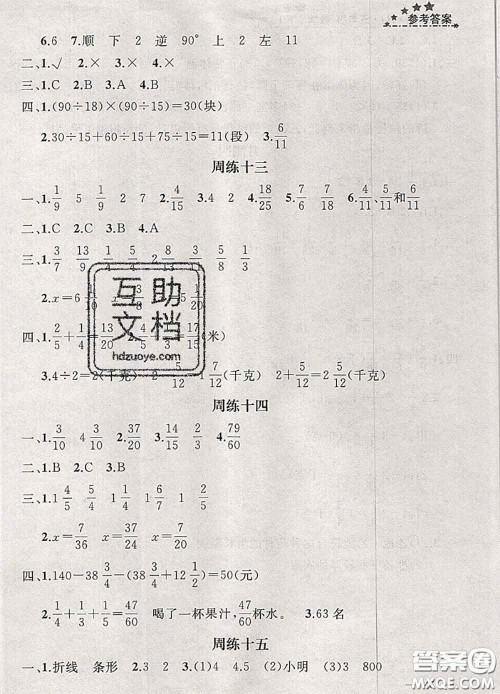 参考答案
6.6 7.顺 下 2 逆 90° 上 2 左 11
二、1.√ 2.× 3.× 4.×
三、1.C 2.B 3.A
四、1.(90÷18)×(90÷15)=30(块)
2.30÷15+60÷15+75÷15=11(段) 3.6/11
周练十三
一、1.1/9 5 1/9 2 7 2.4/15 3.4 2 4.18/25 5.7/6 6.7/8 7.4/11、5/11和6/11
二、1.C 2.C 3.B 4.A
三、1.3/7 13/9 1/4 5/2 8/9 13/5
2.x=6
四、1.2/5+1/4=13/20 (米)
3.4÷2=2(千克) 2 5/12 1 5/12(千克) 2+5/12=2 5/12(千克)
互助
文档
hdzuoye.com
周练十四
一、1.3/10 4 3/10 2.37/30 3.14/15 2/15 4.79/60
二、1.B 2.C 3.B
三、1.1 4/5 5/4 1 1/4 1 6/7 1 2/5
2.x=7/36 x=7/24 x=37/30
四、1.140-38 3/4-(38 3/4+12 1/2)=50(元)
2.1/4+1/3+1/5=47/60 喝了一杯果汁,47/60杯水。 3.63名
周练十五
一、1.折线 条形 2.3 2 3.(1)4 4.5 (2)小明 (3)3 800
答案圈
MXQE.COM